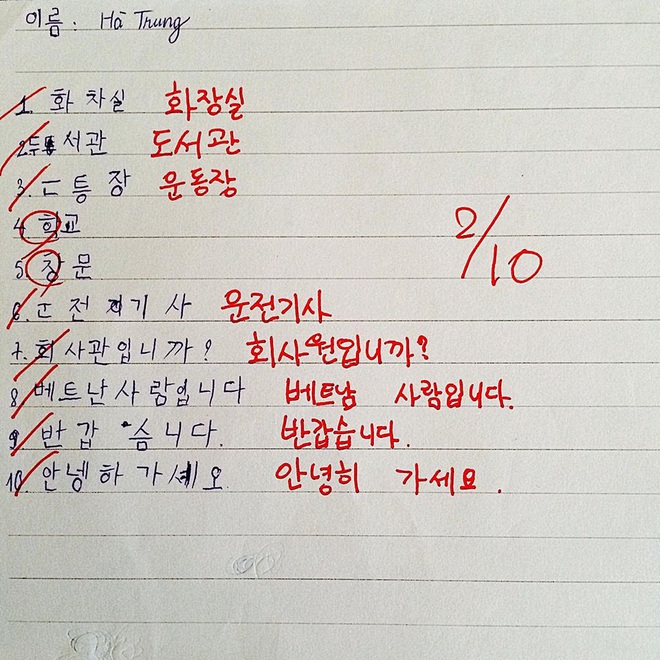 이름 : Hà Trung
1. 화 차실 화장실
2. 서관 도서관
3. 등 장 운동장
4. 학교
5. 창문
6. 전 기 사 운전기사
7. 회사관입니까? 회사원입니까?
8. 베트난사람입니다 베트남 사람입니다.
9. 반갑 숨니다. 반갑습니다.
10. 안넹하가세오 안녕히 가세요.
2/10